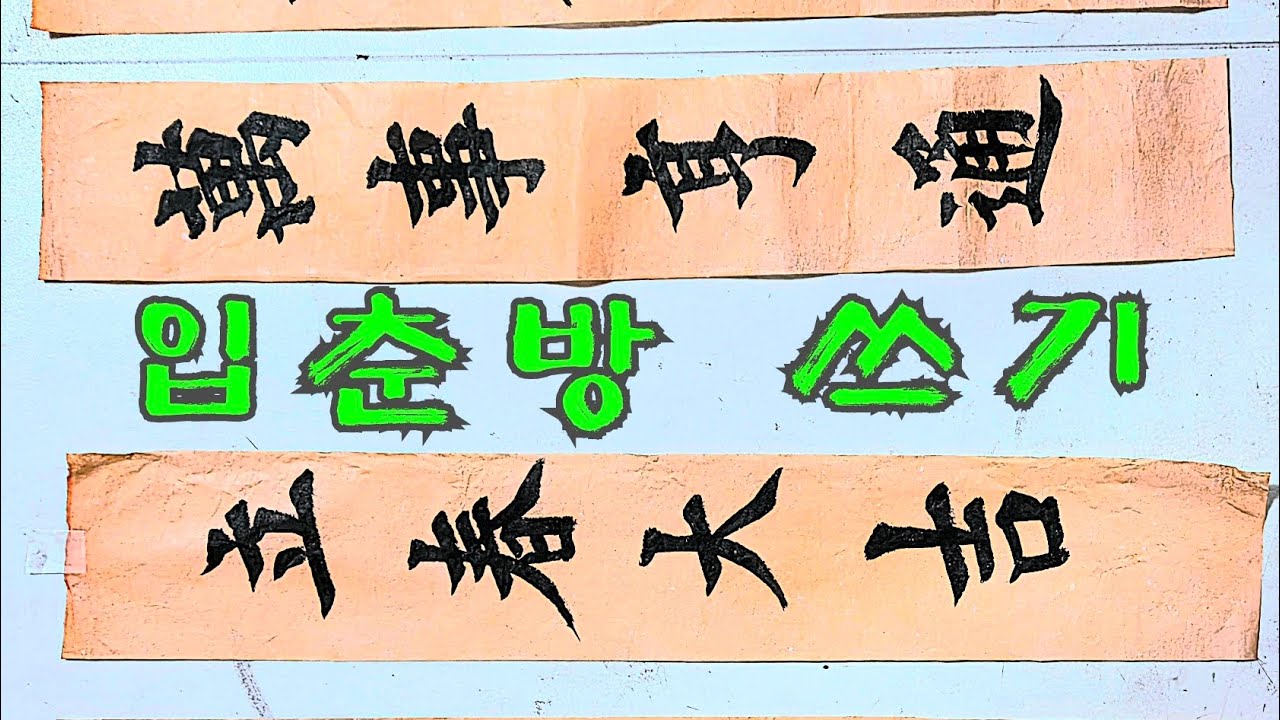 萬事亨通
입춘방 쓰기
立春大吉